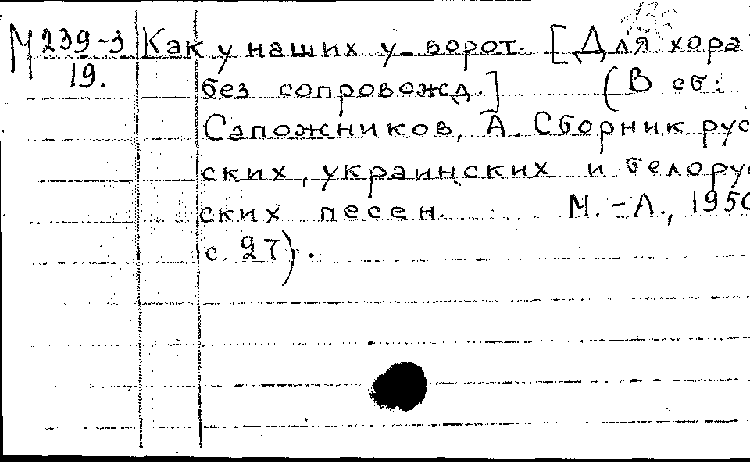 М 239-3 Как у наших у ворот. [Для хора
19. без сопровожд.] (В сб:
Сапожников, А. Сборник рус
ских, украинских и белорус
ских песен. М.-Л., 1950
с. 27).